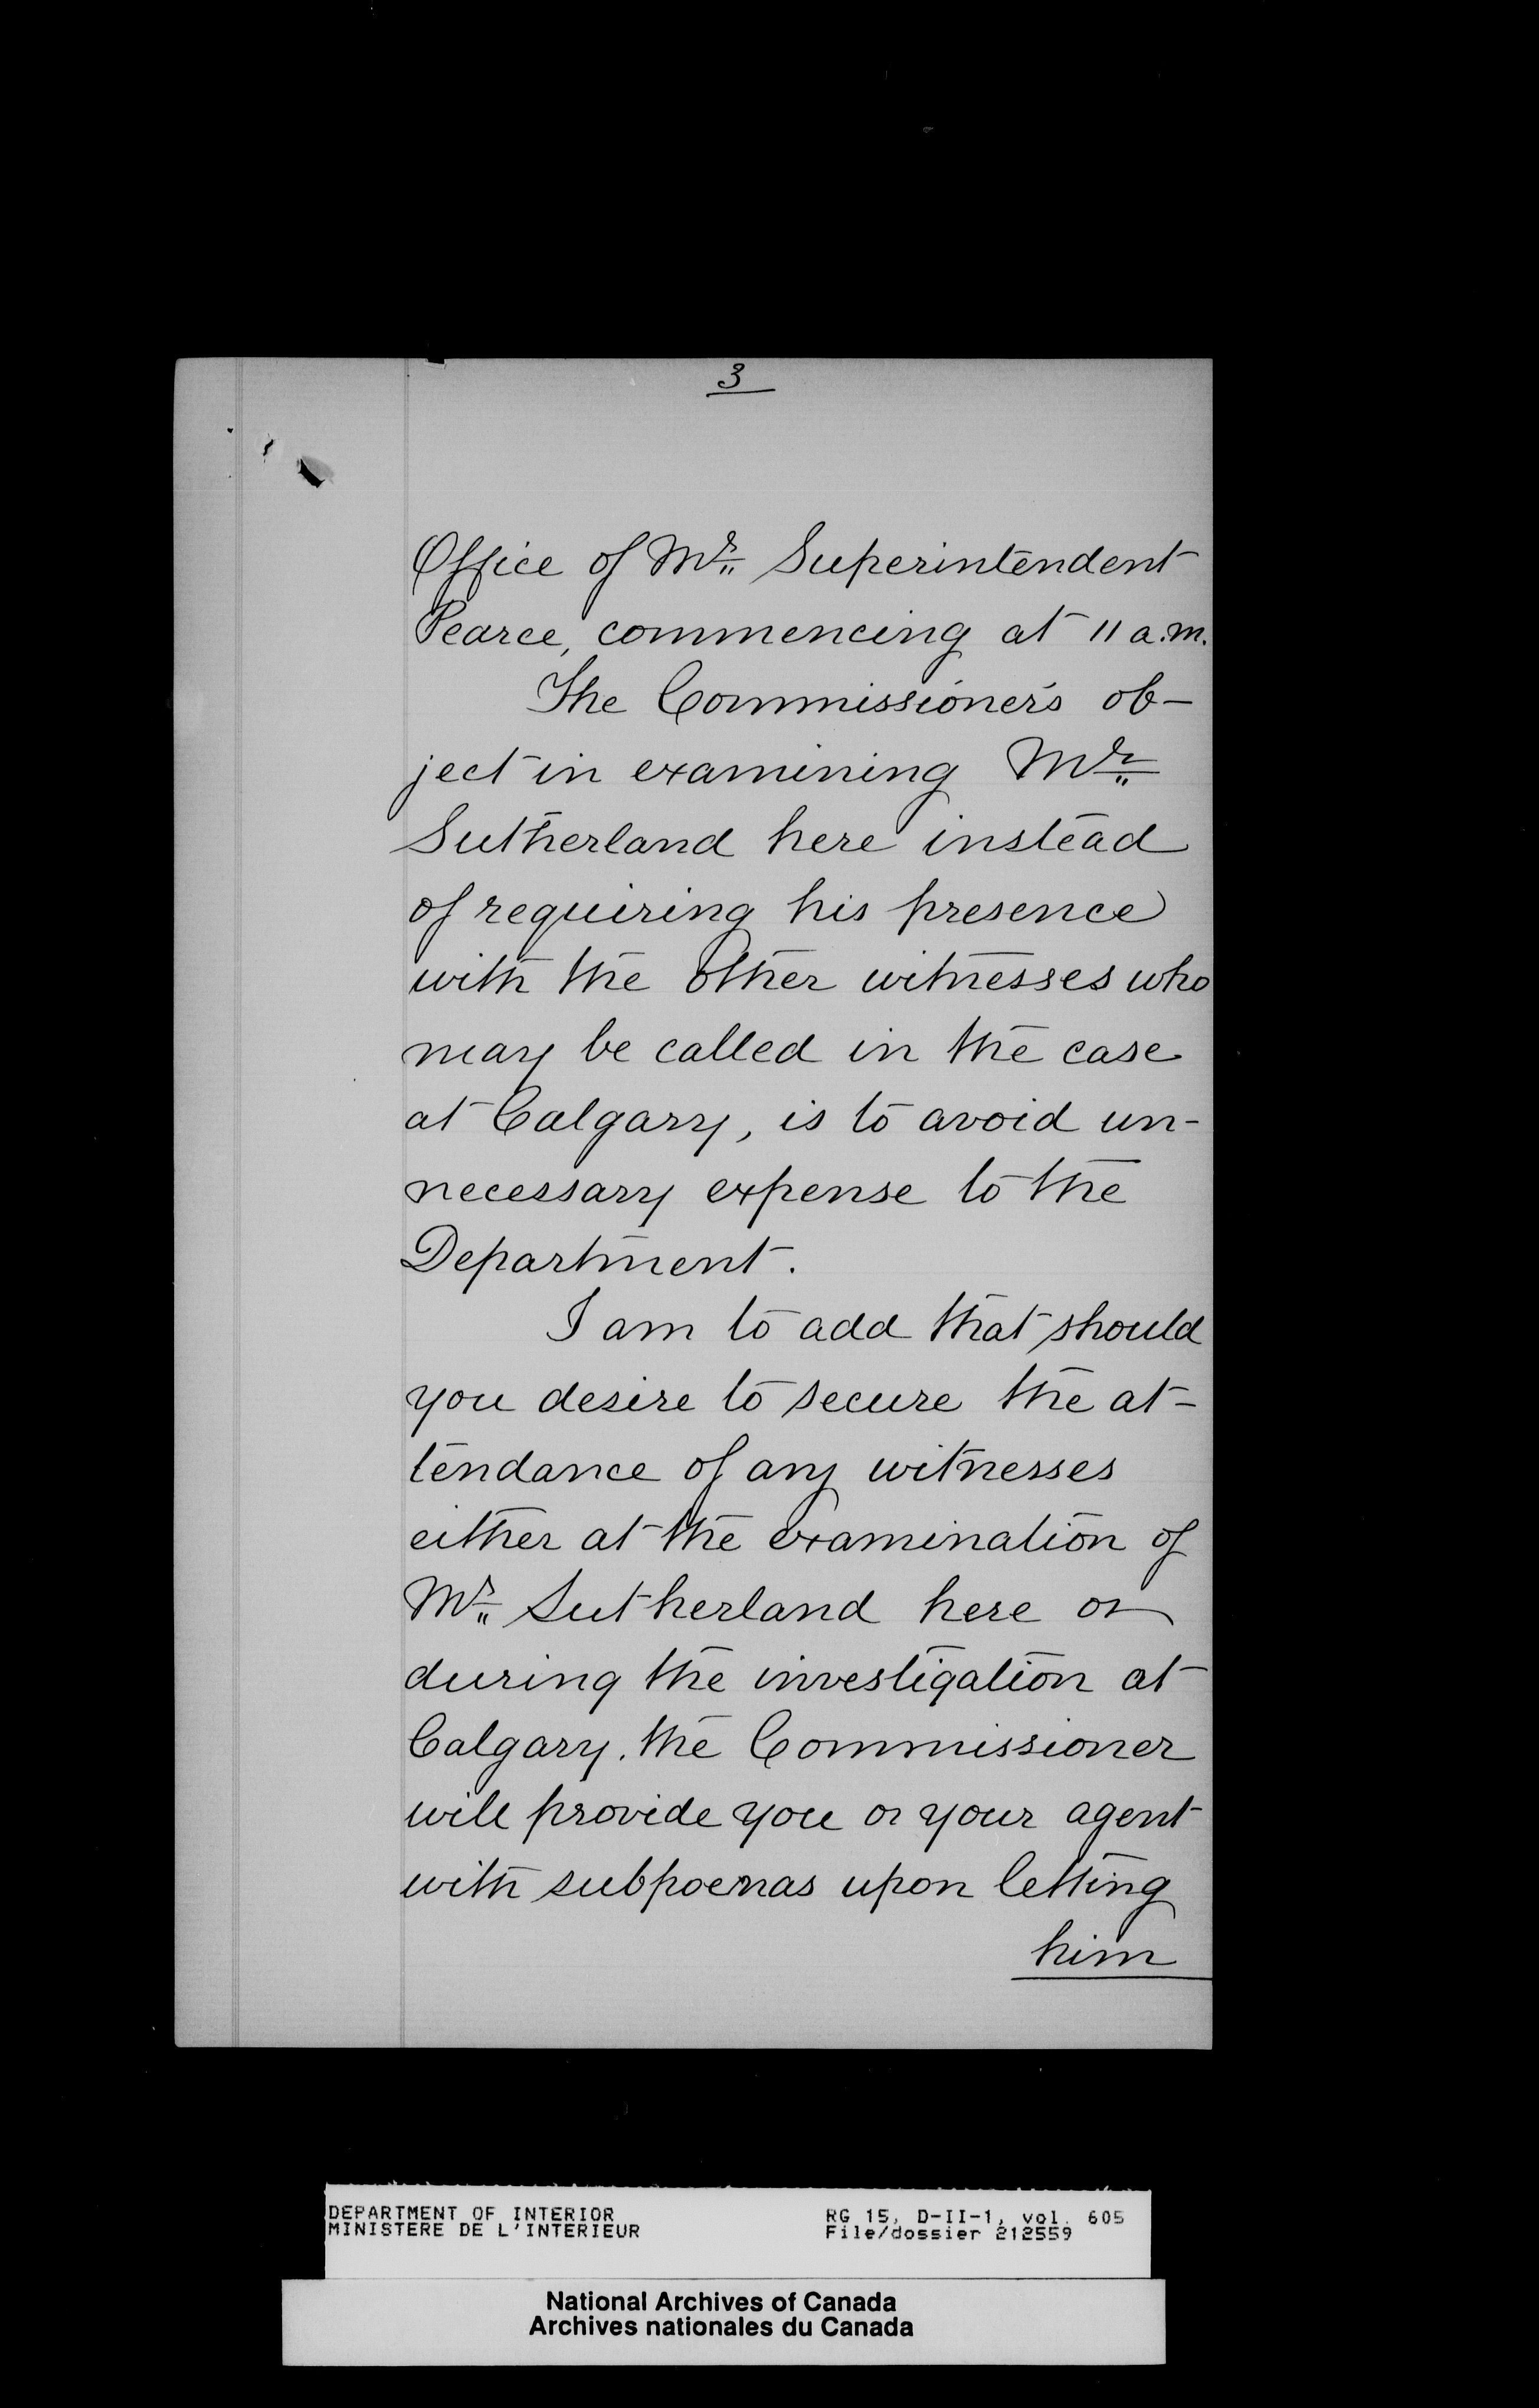 3
Office of Mr. Superintendent
Pearce, commencing at 11 a.m.
The Commissioner's ob-
ject in examining Mr.
Sutherland here instead
of requiring his presence
with the other witnesses who
may be called in the case
at Calgary, is to avoid un-
necessary expense to the
Department.
I am to add that should
you desire to secure the at-
tendance of any witnesses
either at the examination of
Mr. Sutherland here or
during the investigation at
Calgary, the Commissioner
will provide you or your agent
with subpoenas upon letting
him
DEPARTMENT OF INTERIOR
MINISTERE DE L'INTERIEUR
RG 15, D-II-1, vol. 605
File/dossier 212559
National Archives of Canada
Archives nationales du Canada